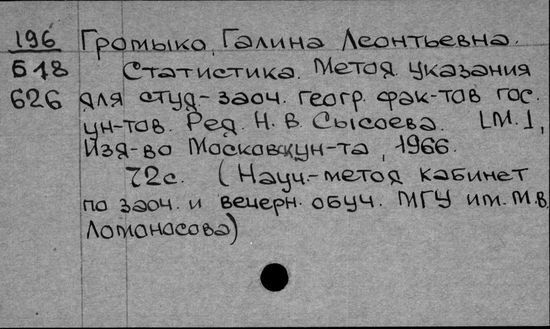 196 Громыко, Галина Леонтьевна.
Б 18 Статистика. Метод. указания
626 для студ-заоч. геогр. фак-тов гос.
ун-тов. Ред. Н. В. Сысоева. [М.],
Изд-во Московск. ун-та, 1966.
72с. (Науч-метод кабинет
по заоч. и вечерн. обуч. МГУ им. М.В.
Ломоносова)